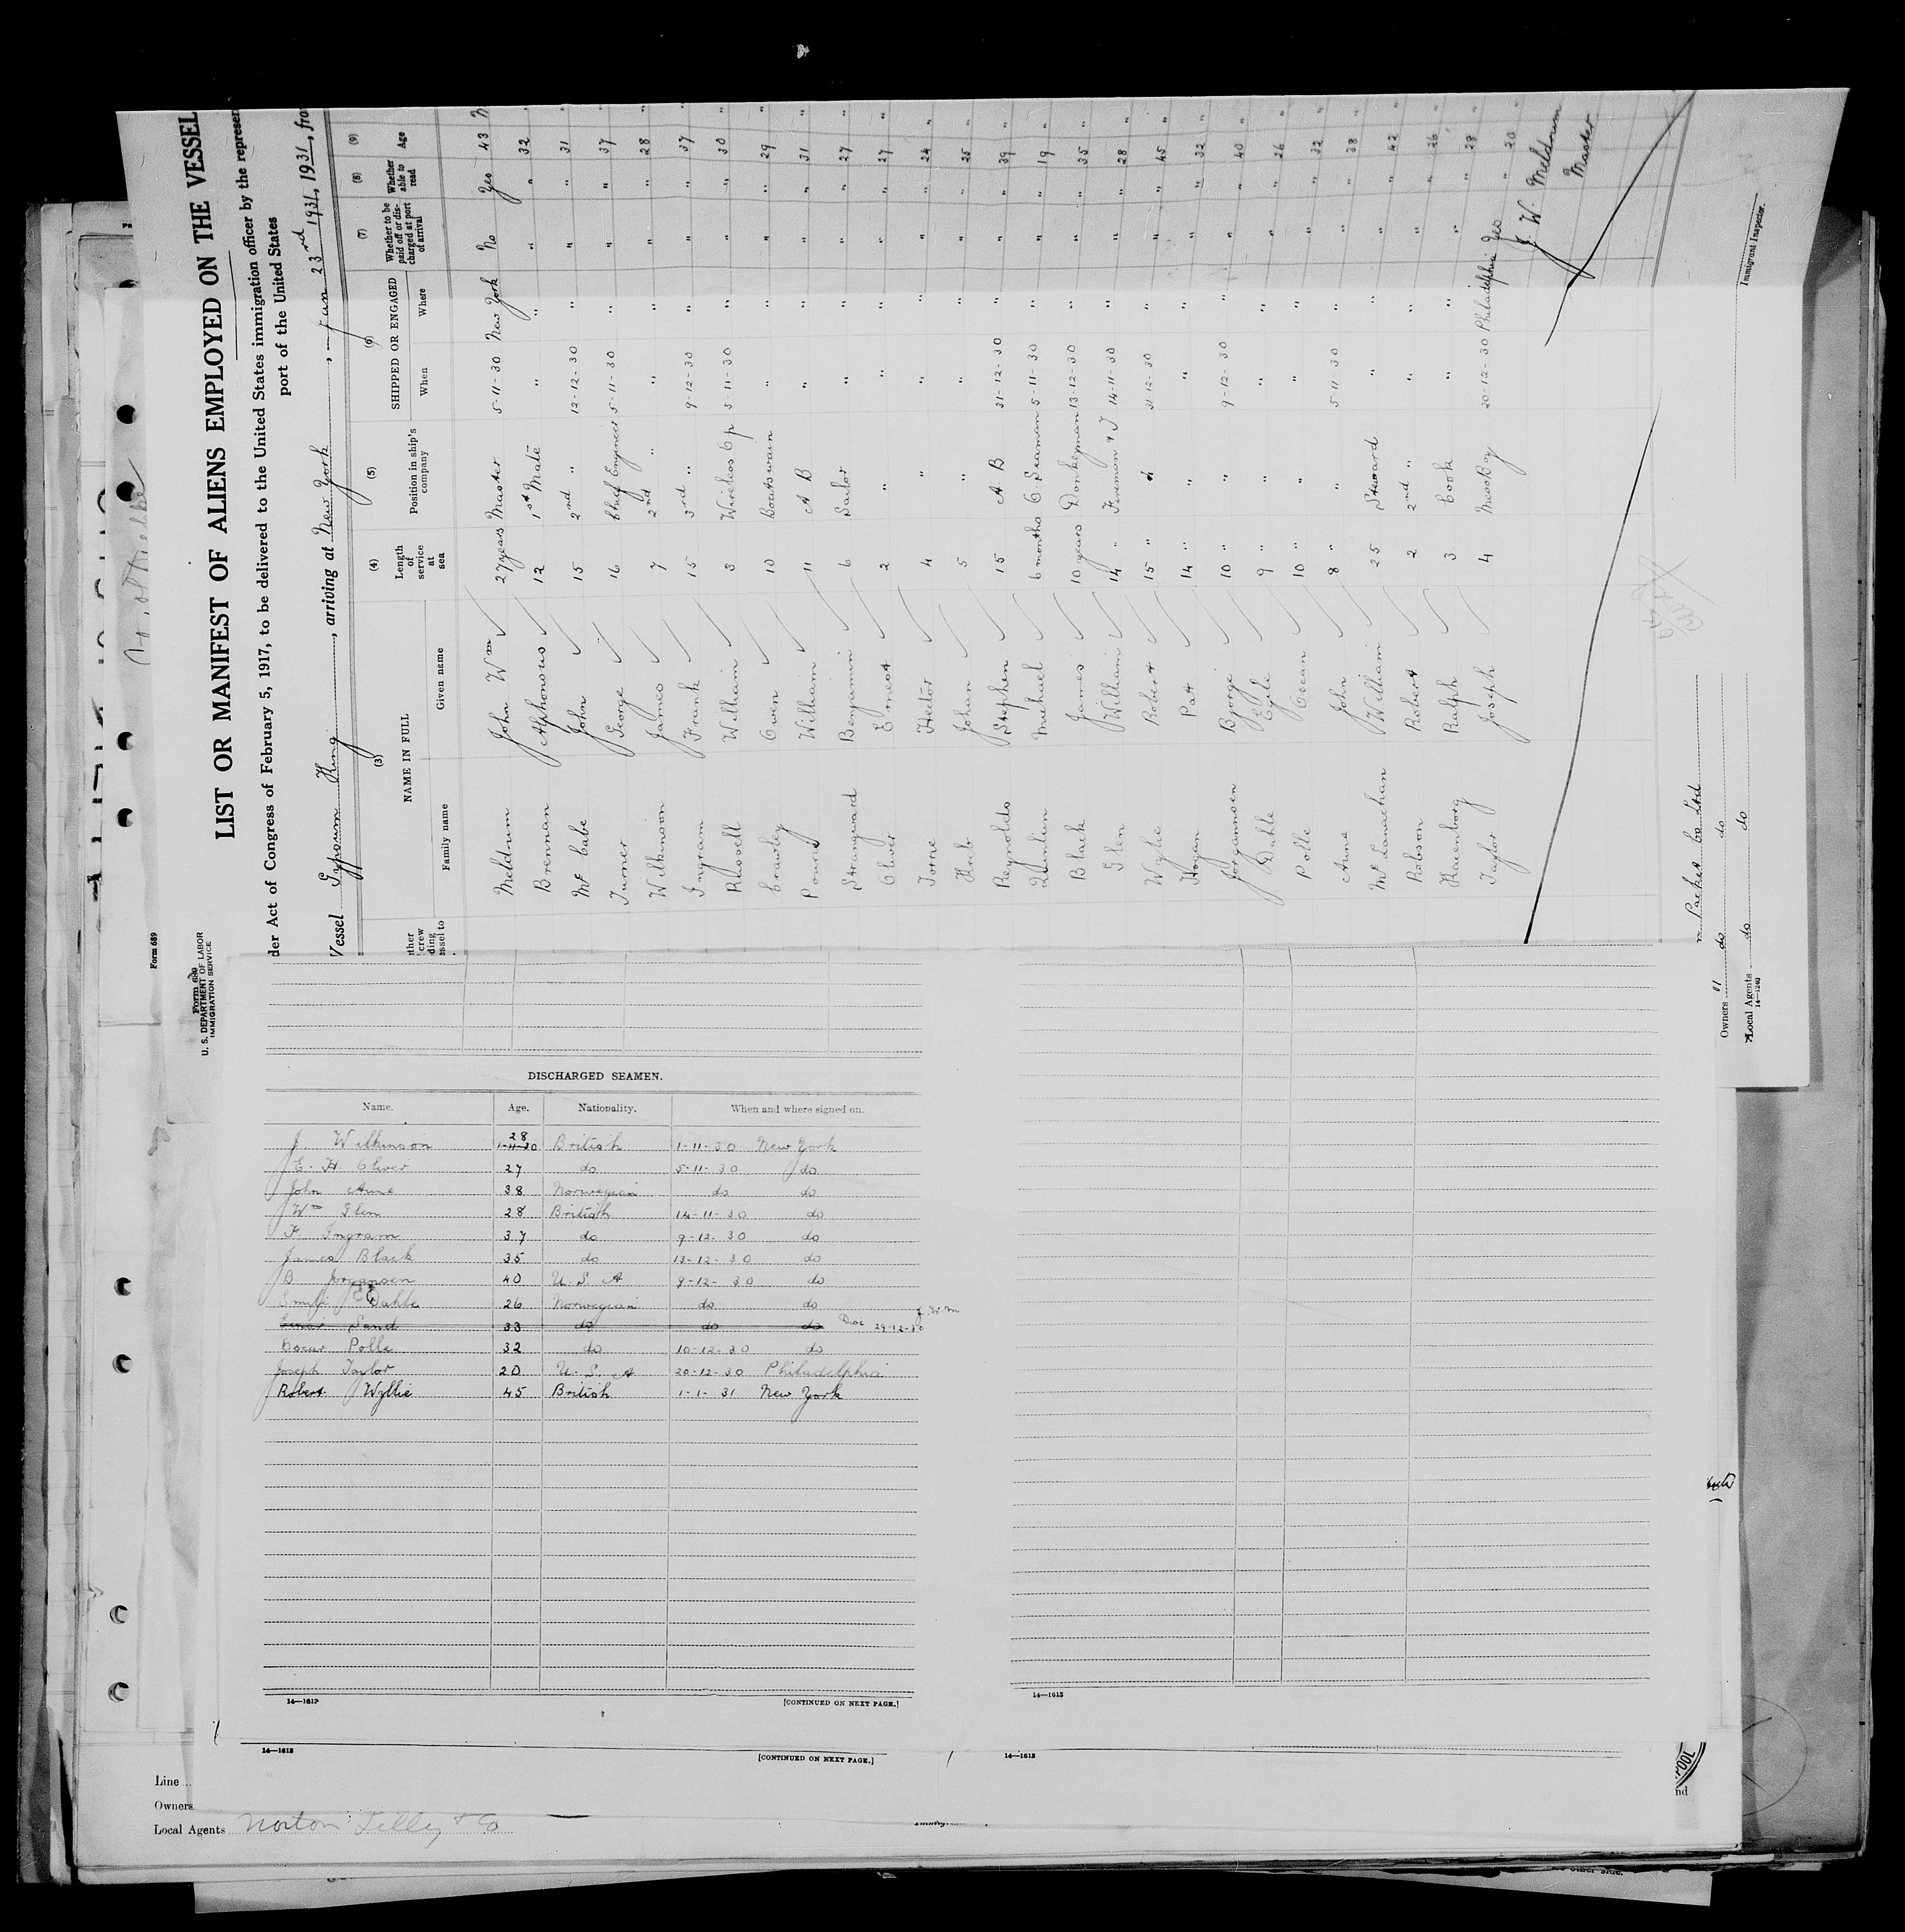 Form 689
U. S. DEPARTMENT OF LABOR
IMMIGRATION SERVICE
LIST OR MANIFEST OF ALIENS EMPLOYED ON THE VESSEL
der Act of Congress of February 5, 1917, to be delivered to the United States immigration officer by the represen
port of the United States
Vessel Gypsum King, arriving at New York, Jan 23rd 1931, 1931, fro
(3) (4) (5) (6) (7) (8) (9)
NAME IN FULL Length of service at sea Position in ship's company SHIPPED OR ENGAGED Whether to be paid off or discharged at port of arrival Whether able to read Age
Family name Given name When Where
Meldrum John Wm 27 years Master 5-11-30 New York No Yes 43
Brennan Alphonsus 12 1st Mate " " " " 32 "
Mc Cabe John 15 2nd " 12-12-30 " " " 31 "
Turner George 16 Chief Engineer 5-11-30 " " " 37 "
Wilkinson James 7 2nd " " " " " 28 "
Ingram Frank 15 3rd " 9-12-30 " " " 37 "
Russell William 3 Wireless Op 5-11-30 " " " 30 "
Crawley Owen 10 Boatswan " " " " 29 "
Power William 11 A B " " " " 31 "
Strangward Benjamin 6 Sailor " " " " 27 "
Oliver Ernest 2 " " " " " 27 "
Torre Hector 4 " " " " " 24 "
Johan 5 " " " " " 25 "
Reynolds Stephen 15 A. B 31-12-30 " " " 39 "
Quinlien Michael 6 months O. Seaman 5-11-30 " " " 19 "
Black James 10 years Donkeyman 13-12-30 " " " 35 "
Glen William 14 " Fireman & T 14-11-30 " " " 28 "
Wylie Robert 15 " " 31-12-30 " " " 45 "
Hogan Pat 14 " " " " " " 32 "
Jorgannsen Bjorge 10 " " 9-12-30 " " " 40 "
Dahle 9 " " " " " " 26 "
Polle Oscan 10 " " " " " " 32 "
Aune John 8 " " 5-11-30 " " " 38 "
Mc Lanachan William 25 Steward " " " " 42 "
Robson Robert 2 2nd " " " " " 26 "
Ralph 3 Cook " " " " 28 "
Taylor Joseph 4 MessBoy 20-12-30 Philadelphia Yes " 20 "
J. W. Meldrum
Master
Immigrant Inspector.
Packet Co Ltd
Owners do do
Local Agents do do
14—1240
DISCHARGED SEAMEN.
Name. Age. Nationality. When and where signed on.
J. Wilkinson 28 1-11-30 British 1-11-30 New York
E. H. Oliver 27 do 5-11-30 do
John Aune 38 Norwegian do do
Wm Glen 28 British 14-11-30 do
F. Ingram 37 do 9-12-30 do
James Black 35 do 13-12-30 do
B. Jorgansen 40 U. S. A 9-12-30 do
Dahle 26 Norwegian do do
Einar Sand 33 do do do Disc 29-12-30 J. W. M
Oscar Polle 32 do 10-12-30 do
Joseph Taylor 20 U. S. A 20-12-30 Philadelphia
Robert Wyllie 45 British 1-1-31 New York
14—1613 [CONTINUED ON NEXT PAGE.] 14—1613
14—1613 [CONTINUED ON NEXT PAGE.] 14—1613
Line
Owners
Local Agents Norton Lilly & Co